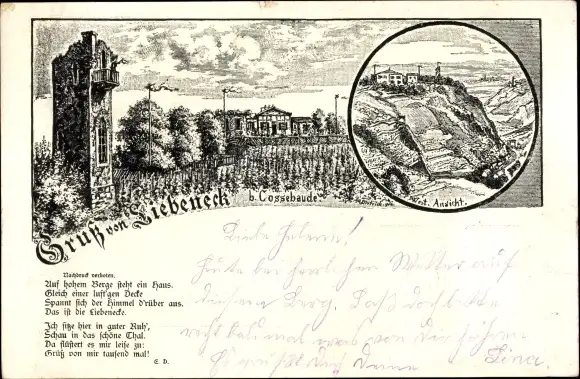 Gruß von Liebeneck
b. Cossebaude.
West. Ansicht.
Nachdruck verboten.
Auf hohem Berge steht ein Haus.
Gleich einer luft'gen Decke
Spannt sich der Himmel d'rüber aus.
Das ist die Liebenecke.
Ich sitze hier in guter Ruh',
Schau in das schöne Thal.
Da flüstert es mir leise zu:
Grüß von mir tausend mal!
E. D.
Liebe
Heute bei herrlichem Wetter auf
diesem Berg. Laß doch bitte
recht bald mal was von dir hören
Es grüßt dich deine Lina.